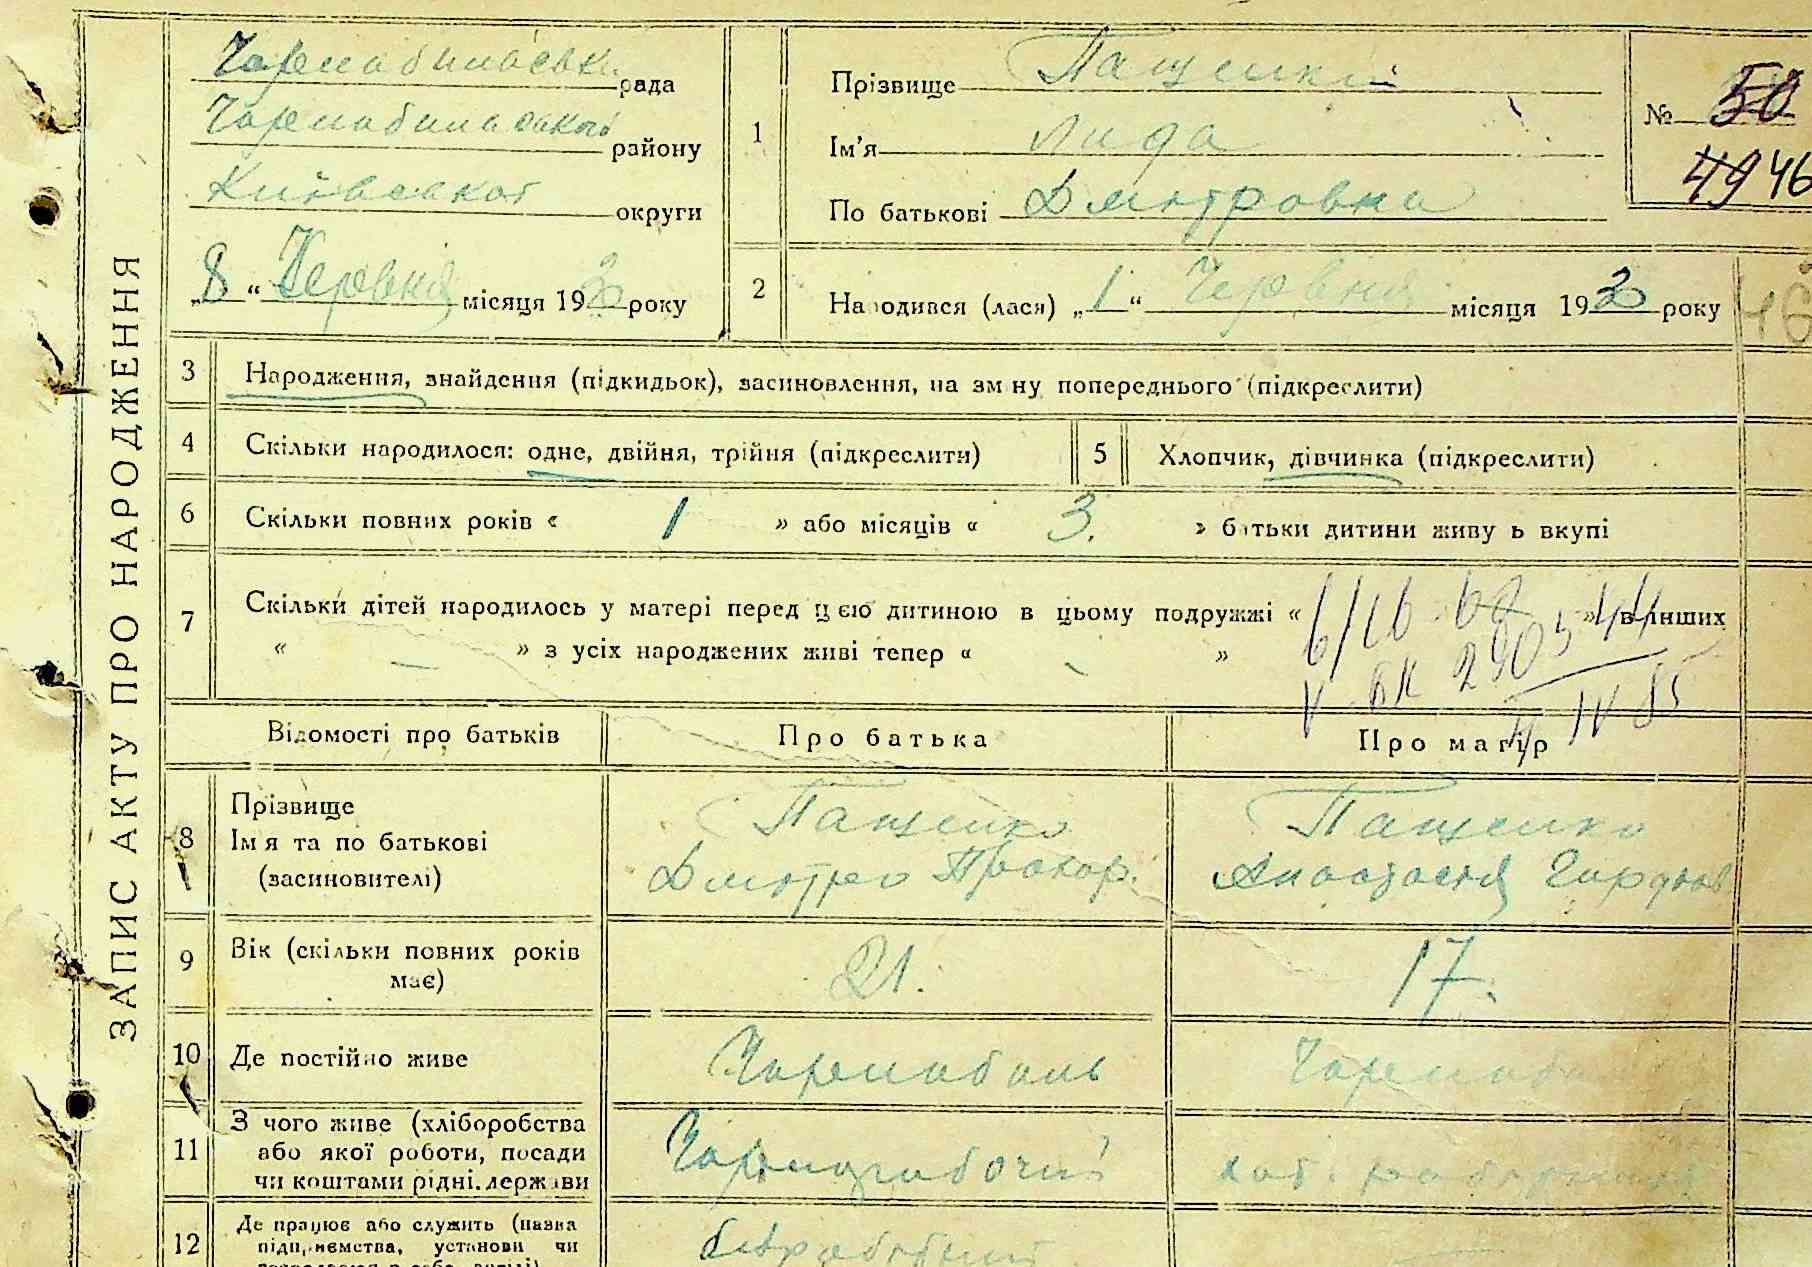 ЗАПИС АКТУ ПРО НАРОДЖЕННЯ
рада
району
округи
„8“ Червня місяця 1930 року
1
Прізвище Пащенко
Ім'я Лида
По батькові Дмитровна
№ 50
49 46
2
Народився (лася) „1“ Червня місяця 1930 року
46
3 Народження, знайдення (підкидьок), засиновлення, на зміну попереднього (підкреслити)
4 Скільки народилося: одне, двійня, трійня (підкреслити)
5 Хлопчик, дівчинка (підкреслити)
6 Скільки повних років « 1 » або місяців « 3. » батьки дитини живуть вкупі
7 Скільки дітей народилось у матері перед цією дитиною в цьому подружжі « » в інших
« — » з усіх народжених живі тепер « »
Відомості про батьків Про батька Про матір
8 Прізвище Пащенко Пащенко
Ім'я та по батькові Дмитро Прокор. Анастасия
(засиновителі)
9 Вік (скільки повних років має) 21. 17.
10 Де постійно живе Чорнобиль
11 З чого живе (хліборобства
або якої роботи, посади
чи коштами рідні, держави Чорноробочий
12 Де працює або служить (назва
підприємства, установи чи
безробітний